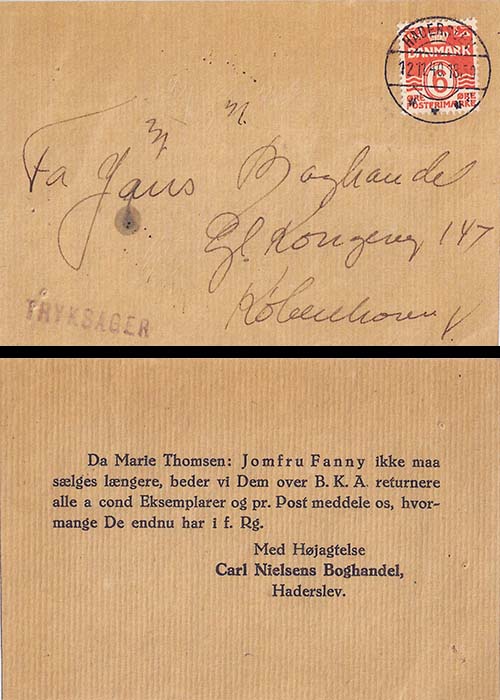 HADERSLEV
12.12.40.18
DANMARK
6
ØRE ØRE
POSTFRIMÆRKE
Fa Jans Boghandel
Gl. Kongevej 147
København V
TRYKSAGER
Da Marie Thomsen: Jomfru Fanny ikke maa
sælges længere, beder vi Dem over B. K. A. returnere
alle a cond Eksemplarer og pr. Post meddele os, hvor-
mange De endnu har i f. Rg.
Med Højagtelse
Carl Nielsens Boghandel,
Haderslev.